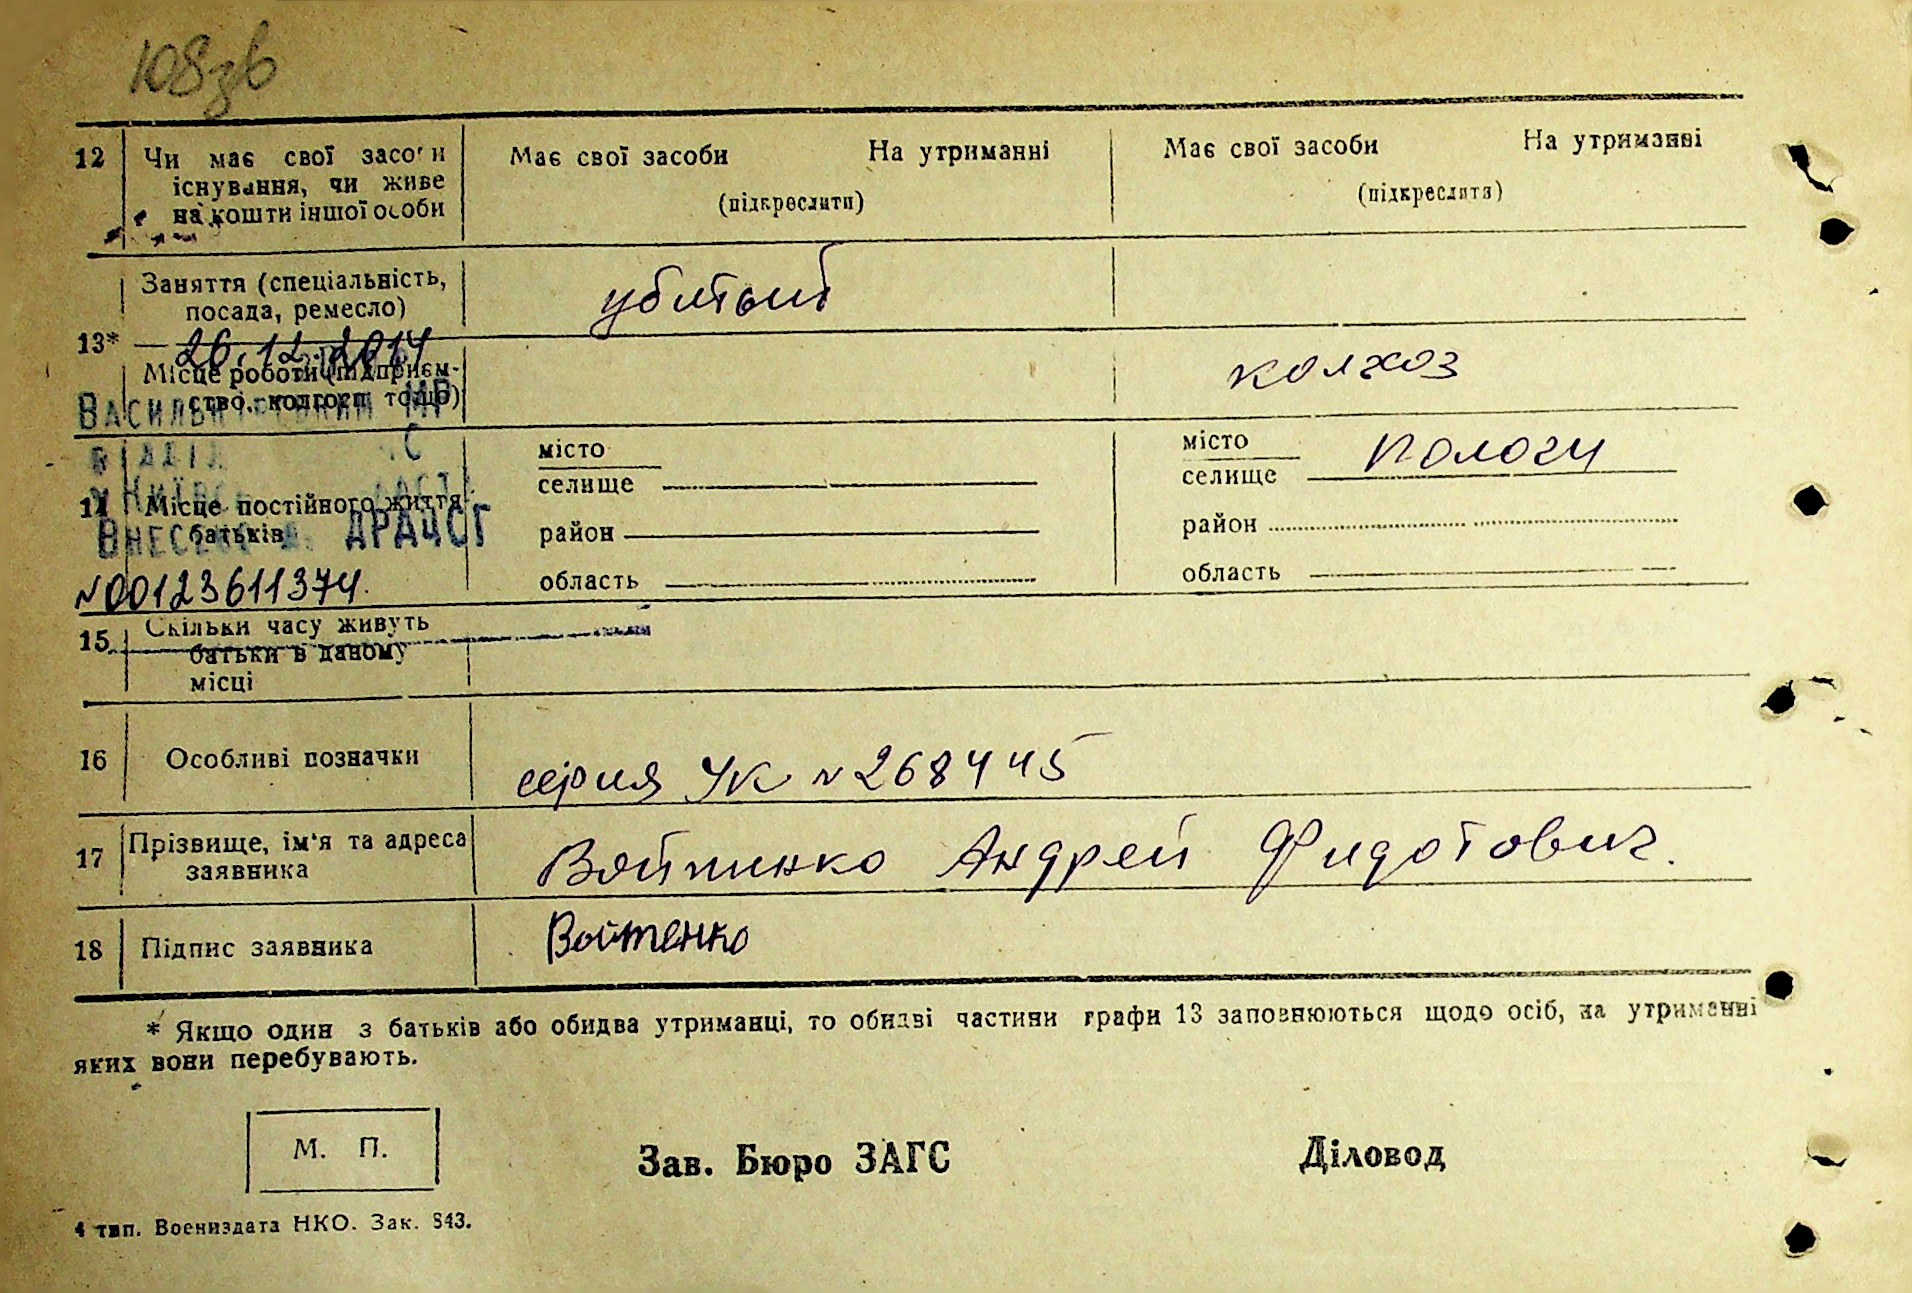 108зв
12 Чи має свої засоби Має свої засоби На утриманні Має свої засоби На утриманні
існування, чи живе
на кошти іншої особи (підкреслити) (підкреслити)
Заняття (спеціальність,
посада, ремесло) убитый
13*
26.12.2014
Місце роботи (підприєм-
ство, колгосп тощо) колхоз
Васильківський МР
відділ
Київсь
14 Місце постійного життя
батьків
місто
селище
район
область
місто
селище Пологи
район
область
Внесено д. ДРАЦСГ
№00123611374.
15 Скільки часу живуть
батьки в даному
місці
16 Особливі позначки серия УК №268445
17 Прізвище, ім'я та адреса
заявника Войтинко Андрей Фидотович.
18 Підпис заявника Войтенко
* Якщо один з батьків або обидва утриманці, то обидві частини графи 13 заповнюються щодо осіб, на утриманні
яких вони перебувають.
М. П. Зав. Бюро ЗАГС Діловод
4 тип. Воениздата НКО. Зак. 843.